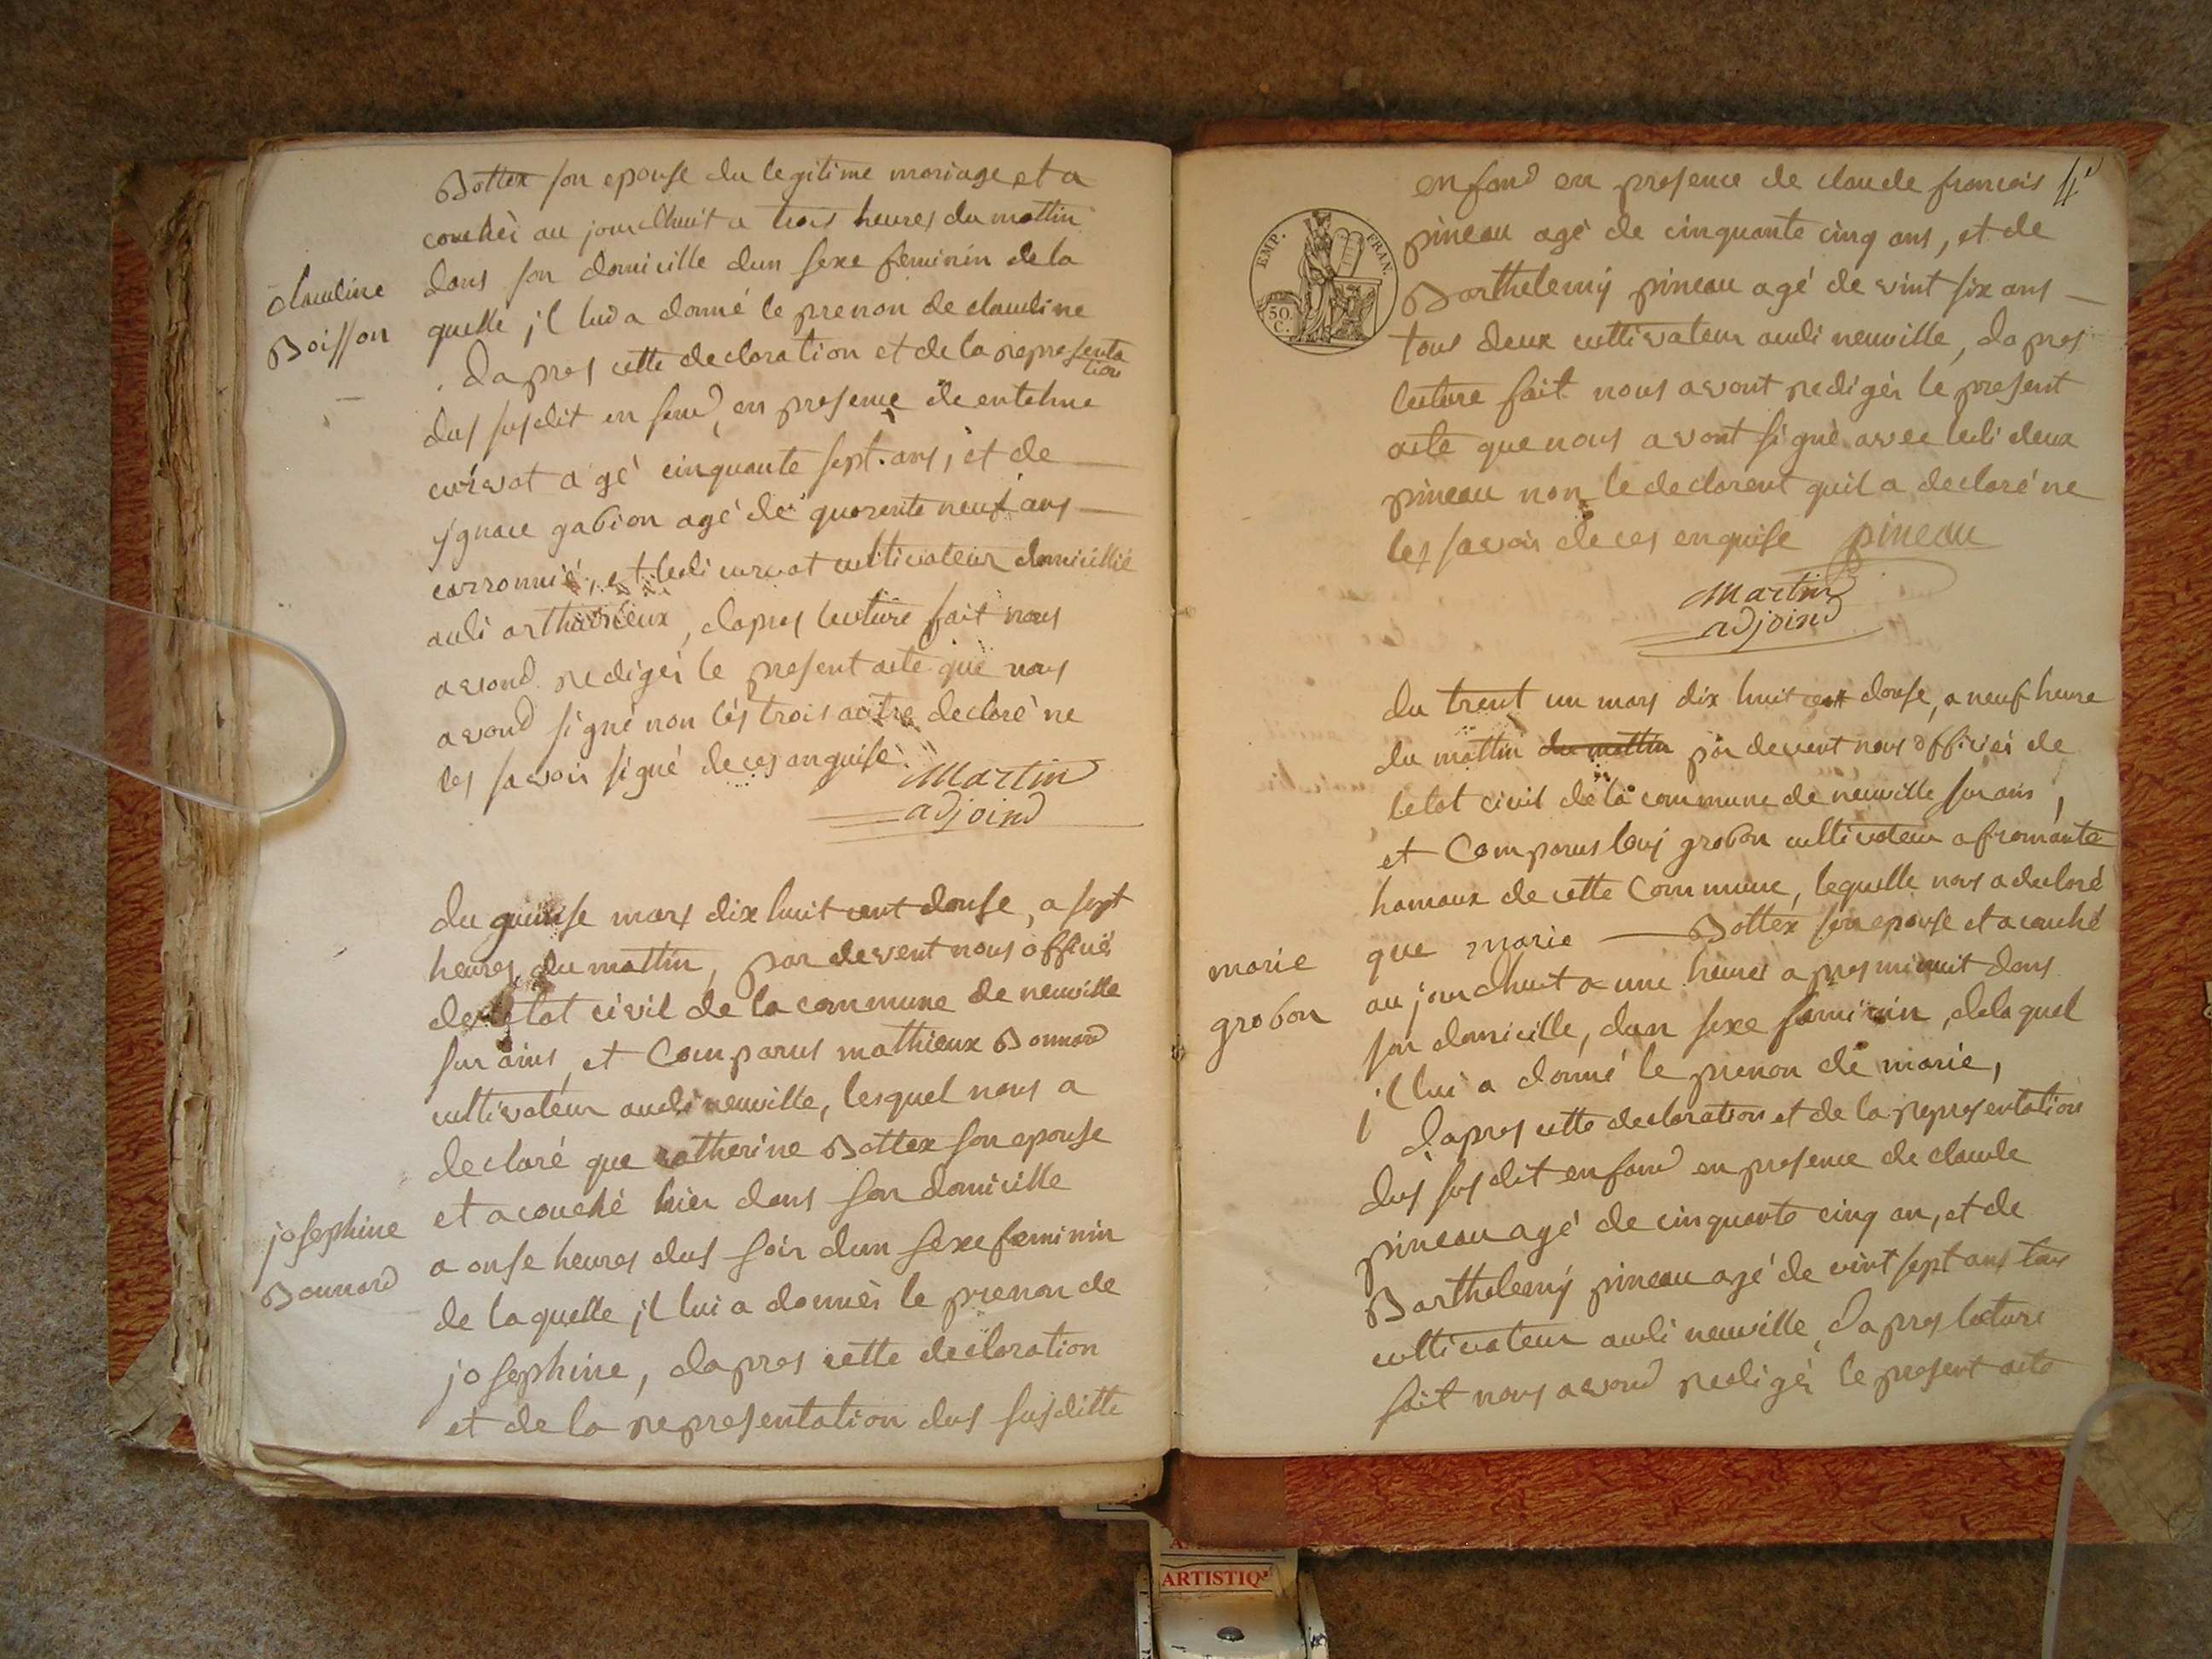 Bottex son epouse du legitime mariage et a
couchèi au jourdhuit a trois heures du mattin
dans son domicille dun sexe feminin de la
quelle jl lui a donné le prenon de claudine
claudine
Boisson
dapres cette declaration et de la representa
tion
dus susdit en fend, en presence de entelme
curvat agé cinquante sept ans, et de
ygnace gabion agé de quarente neuf ans
carronnié, et ledi curvat cultivateur domicillié
audi arthurieux, dapres lecture fait nous
avond redigéi le present acte que nous
avond signé non lés trois autre declaré ne
les savoir signé de ces anquise
Martin
adjoind
du quinse mars dix huit cent douse, a sept
heures du mattin, par devent nous officié
de letat civil de la commune de neuville
sur ains, et Comparus mathieux Bonnard
cultivateur audi neuville, lesquel nous a
declaré que catherine Bottex son epouse
et acouché hier dans son domicille
a onse heures dus soir dun sexe feminin
de laquelle jl lui a donnéi le prenon de
josephine, dapres cette declaration
et de la representation dus susditte
josephine
Bonnard
4
enfand en presence de claude francois
pineau agé de cinquante cinq ans, et de
Barthelemÿ pineau agé de vint six ans
tous deux cultivateur audi neuville, dapres
lecture fait nous avont redigéi le present
acte que nous avont signé avec ledi deux
pineau non le declarent quil a declaré ne
les savoir de ces enquise pineau
Martin
adjoind
EMP. FRAN.
50.
C.
du trent un mars dix huit cent douse, a neuf heure
du mattin du mattin par devent nous officiéi de
letat civil de la commune de neuville sur ains,
et Comparus louis grobon cultivateur a fromante
hamaux de cette Commune, lequelle nous a declaré
que marie Bottex son epouse et acouché
au jourdhuit a une heures apres minuit dans
son domicille, dun sexe feminin, de laquel
il lui a donné le prenon de marie,
marie
grobon
dapres cette declaration et de la representation
dus susdit enfand en presence de claude
pineau agé de cinquante cinq an, et de
Barthelemÿ pineau agé de vint sept ans tous
cultivateur audi neuville, dapres lecture
fait nous avond redigéi le present acte
ARTISTIQ